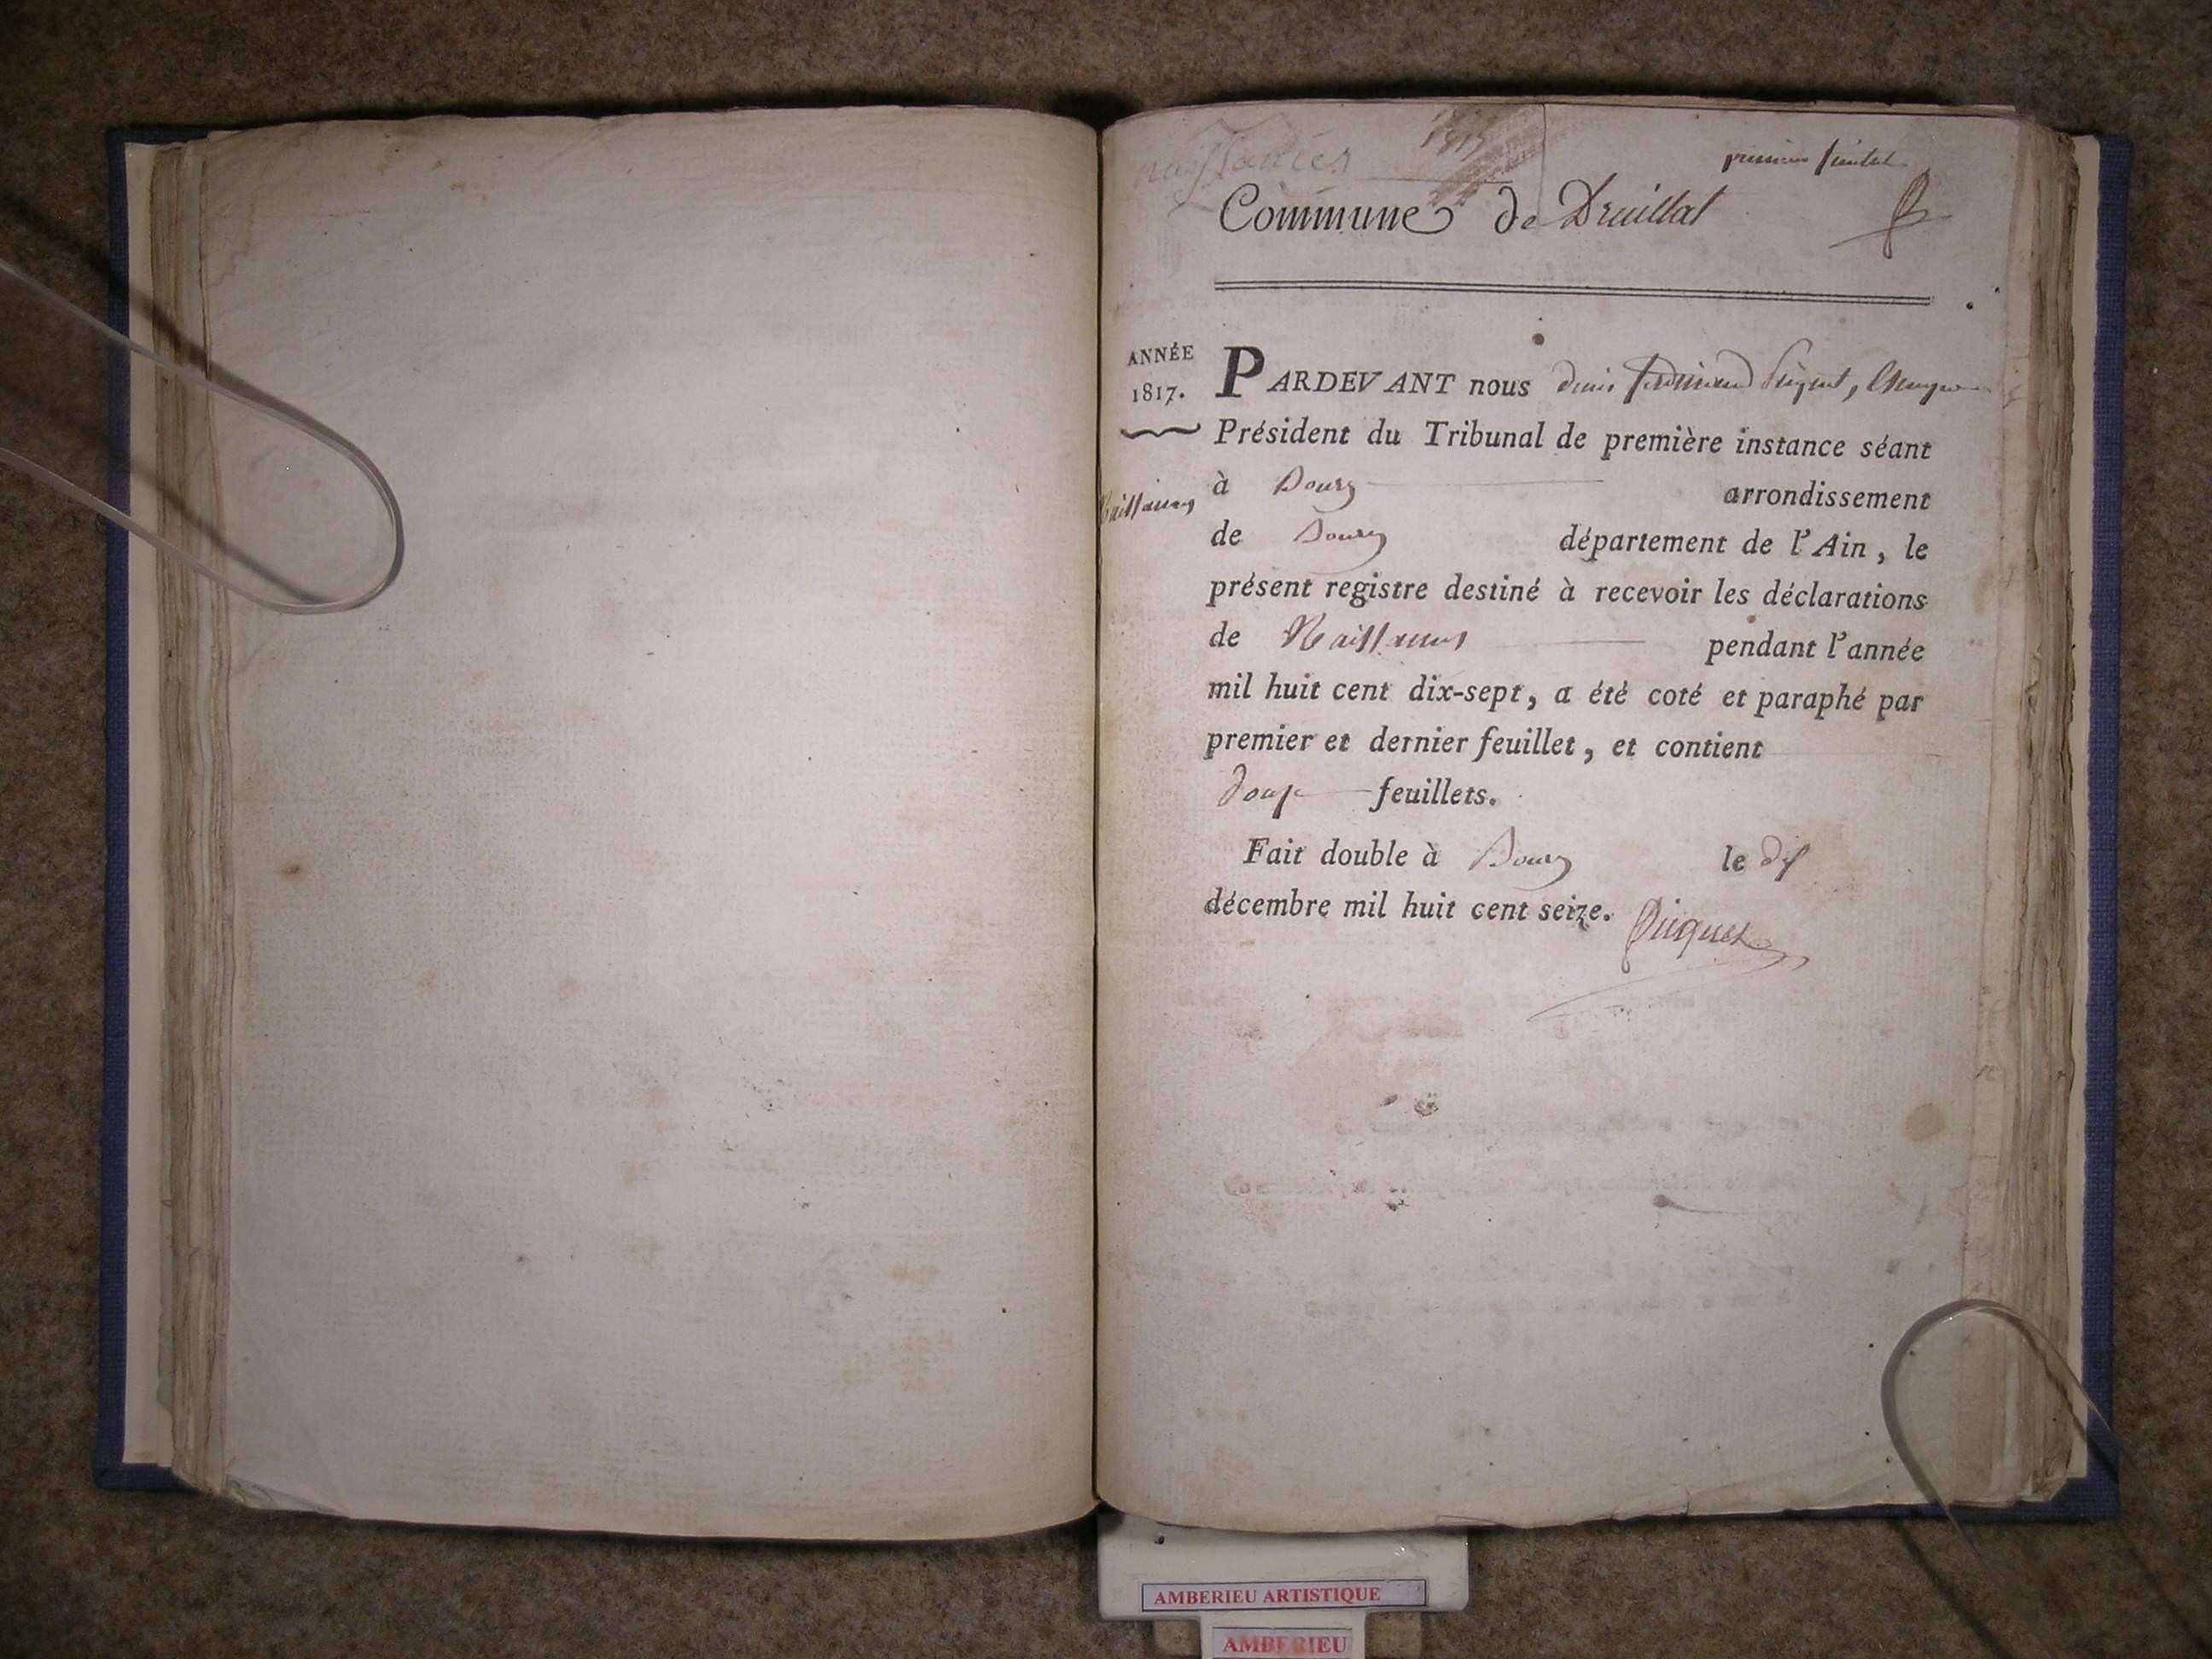 naissances
1817
premier feuillet
Commune de Druillat
ANNÉE
1817.
Naissances
PARDEVANT nous denis ferdinand
Président du Tribunal de première instance séant
à Bourg arrondissement
de Bourg département de l'Ain, le
présent registre destiné à recevoir les déclarations
de Naissances pendant l'année
mil huit cent dix-sept, a été coté et paraphé par
premier et dernier feuillet, et contient
douze feuillets.
Fait double à Bourg le dix
décembre mil huit cent seize.
AMBERIEU ARTISTIQUE
AMBERIEU